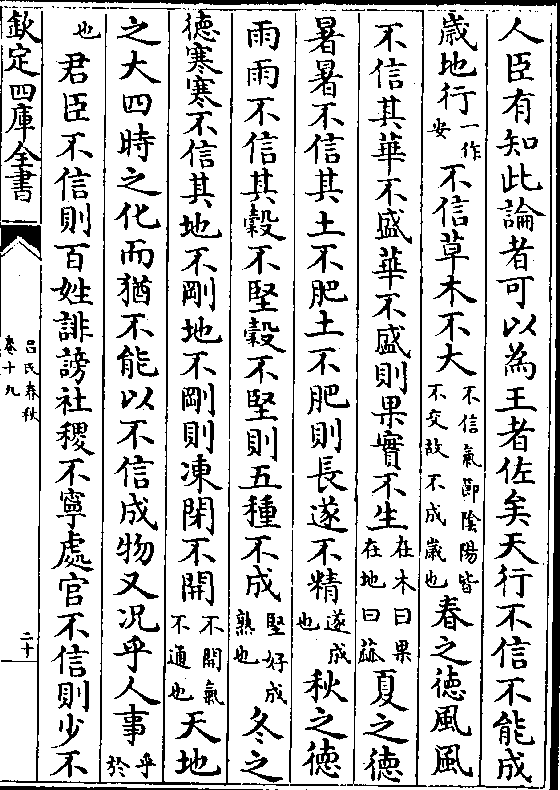 人臣有知此論者可以為王者佐矣天行不信不能成
歲地行一作安不信草木不大不信氣節陰陽皆不交故不成歲也春之徳風風
不信其華不盛華不盛則果實不生在木曰果在地曰蓏夏之徳
暑暑不信其土不肥土不肥則長遂不精遂成也秋之徳
雨雨不信其穀不堅穀不堅則五種不成堅好成熟也冬之
徳寒寒不信其地不剛地不剛則凍閉不開不開氣不通也天地
之大四時之化而猶不能以不信成物又况乎人事乎於
也君臣不信則百姓誹謗社稷不寧處官不信則少不
欽定四庫全書
吕氏春秋
卷十九
二十